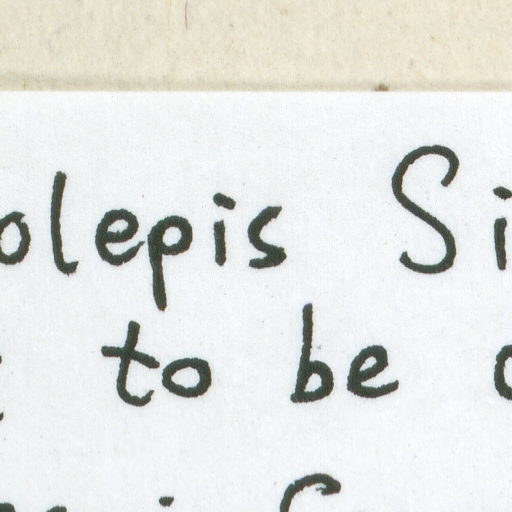 olepis Si
to be